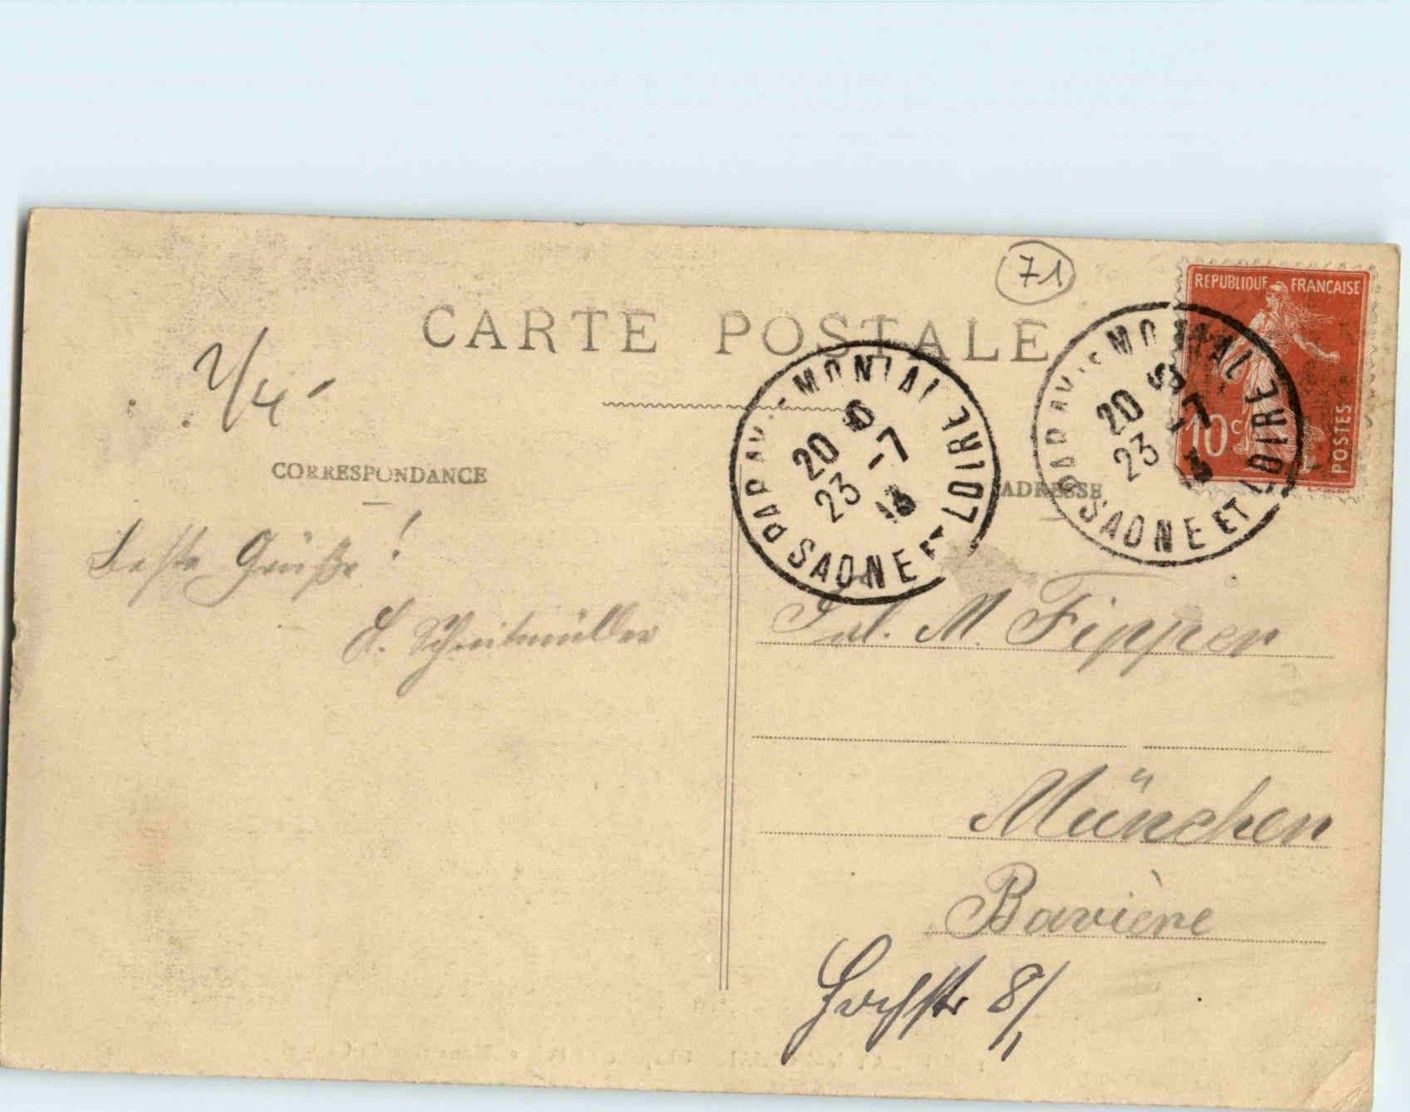 71
REPUBLIQUE FRANÇAISE
10c
POSTES
CARTE POSTALE
PARAY-LE-MONIAL
20
23
-7
SAONE ET LOIRE
PARAY-LE-MONIAL
20
23
-7
SAONE ET LOIRE
CORRESPONDANCE
ADRESSE
Beste Grüße!
Frl. M. Fipper
München
Bavière
Hochstr 8/1